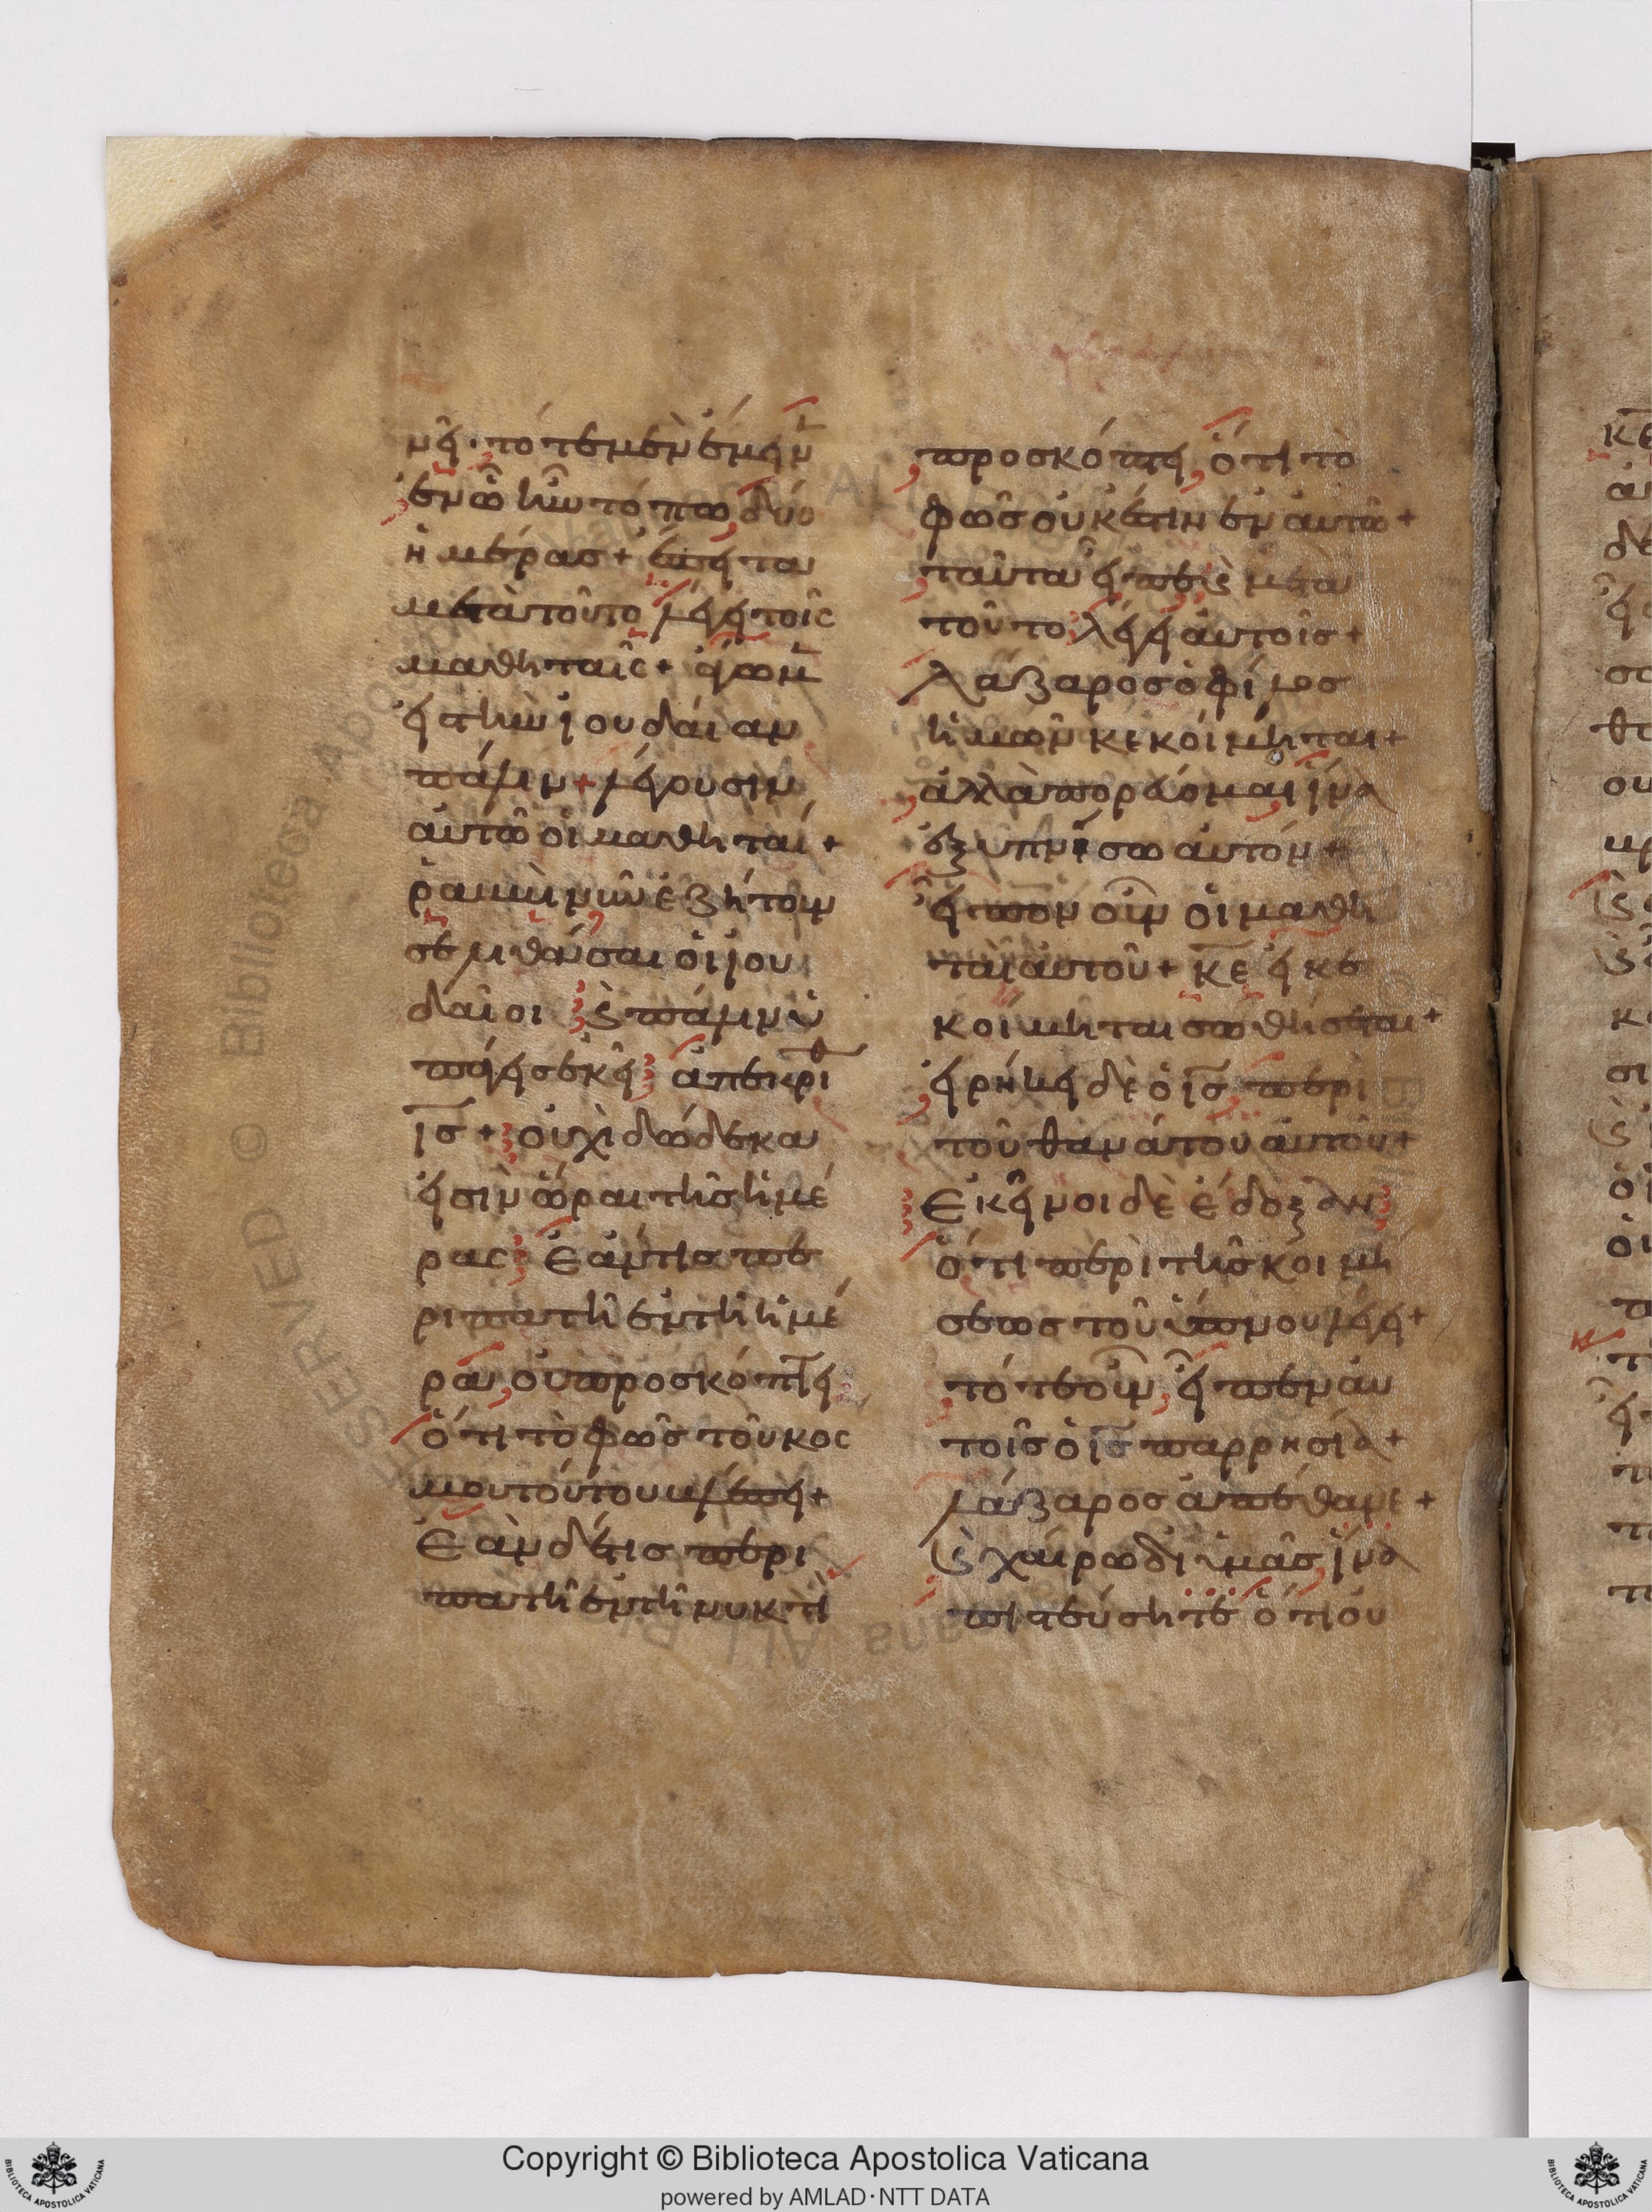 νεῖ· τότε μὲν ἔμειν
ἐν ᾧ ἦν τόπω δύο
ἡμέρας + ἔπειτα
μετὰ τοῦτο λέγει τοῖς
μαθηταῖς + ἄγωμ
εἰς τὴν ἰουδαίαν
πάλιν + λέγουσιν
αὐτῶ οἱ μαθηταί +
ῥαββὶ νῦν ἐζήτουν
σε λιθάσαι οἱ ἰου
δαῖοι ϗ πάλιν ὑ
πάγεις ἐκεῖ ἀπεκρίθ
ις + οὐχὶ δώδεκα
εἰσὶν ὧραι τῆς ἡμέ
ρας ἐάν τις πε
ριπατῆ ἐν τῆ ἡμέ
ρα, οὐ προσκόπτει
ὅτι τὸ φῶς τοῦ κοσ
μου τούτου βλέπει +
Ἐὰν δέ τις περι
πατῆ ἐν τῆ νυκτὶ
προσκόπτει, ὅτι τὸ
φῶς οὐκ ἔστιν ἐν αὐτῶ +
ταῦτα εἶπε ϗ μετὰ
τοῦτο λέγει αὐτοῖς +
λάζαρος ὁ φίλος
ἡμῶν κεκοίμηται +
ἀλλὰ πορεύομαι ἵνα
ἐξυπνίσω αὐτόν +
εἶπον οὖν οἱ μαθη
ταὶ αὐτοῦ + κε εἰ κε
κοίμηται σωθήσεται +
εἰρήκει δὲ ὁ ις περὶ
τοῦ θανάτου αὐτοῦ +
Ἐκεῖνοι δὲ ἔδοξαν
ὅτι περὶ τῆς κοιμή
σεως τοῦ ὕπνου λέγει +
τότε οὖν, εἶπεν αὐ
τοῖς ὁ ις παρρησία +
λάζαρος ἀπέθανε +
ϗ χαίρω δι ὑμᾶς, ἵνα
πιστεύσητε ὅτι οὐ
Copyright © Biblioteca Apostolica Vaticana
powered by AMLAD·NTT DATA